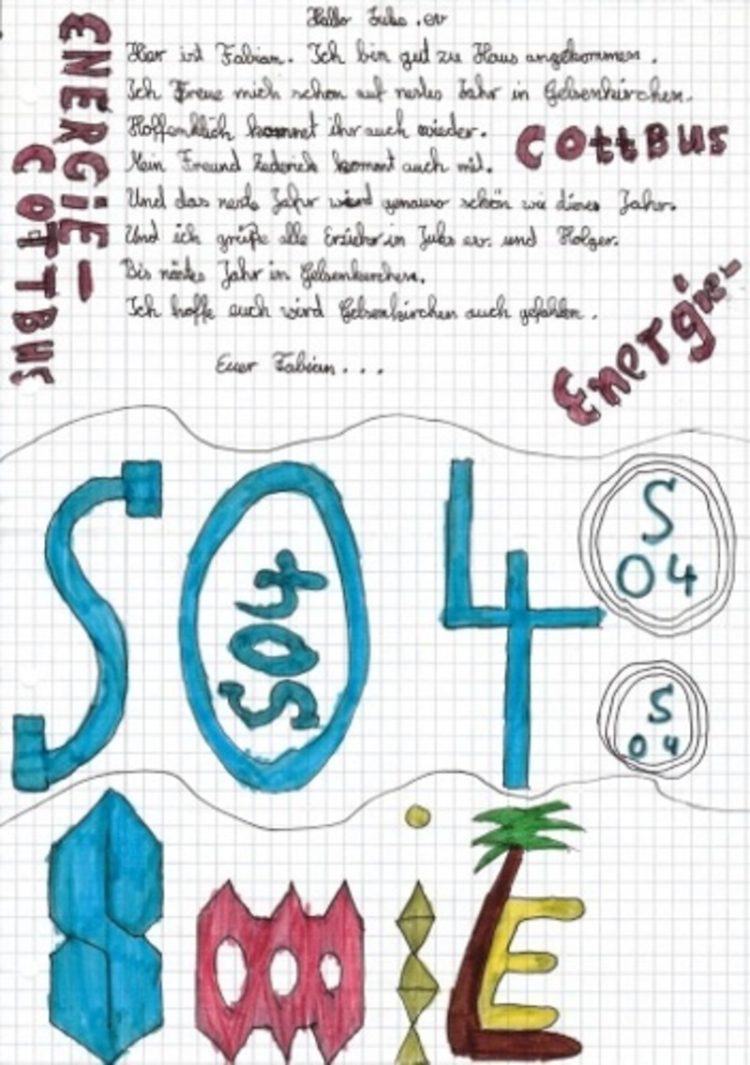 Hallo Juks.ev
Hier ist Fabian. Ich bin gut zu Haus angekommen.
Ich Freue mich schon auf nestes Jahr in Gelsenkirchen.
Hoffenklich kommet ihr auch wieder.
Mein Freund kommt auch mit.
Und das neste Jahr wird genauso schön wie dieses Jahr.
Und ich grüße alle Erzieher in Juks ev. und Holger.
Bis nästes Jahr in Gelsenkirchen.
Ich hoffe auch wird Gelsenkirchen auch gefahlen.
Euer Fabian...
ENERGiE-
COTTBUS
COttBUS
Energie-
S04
S04
S
04
S
04